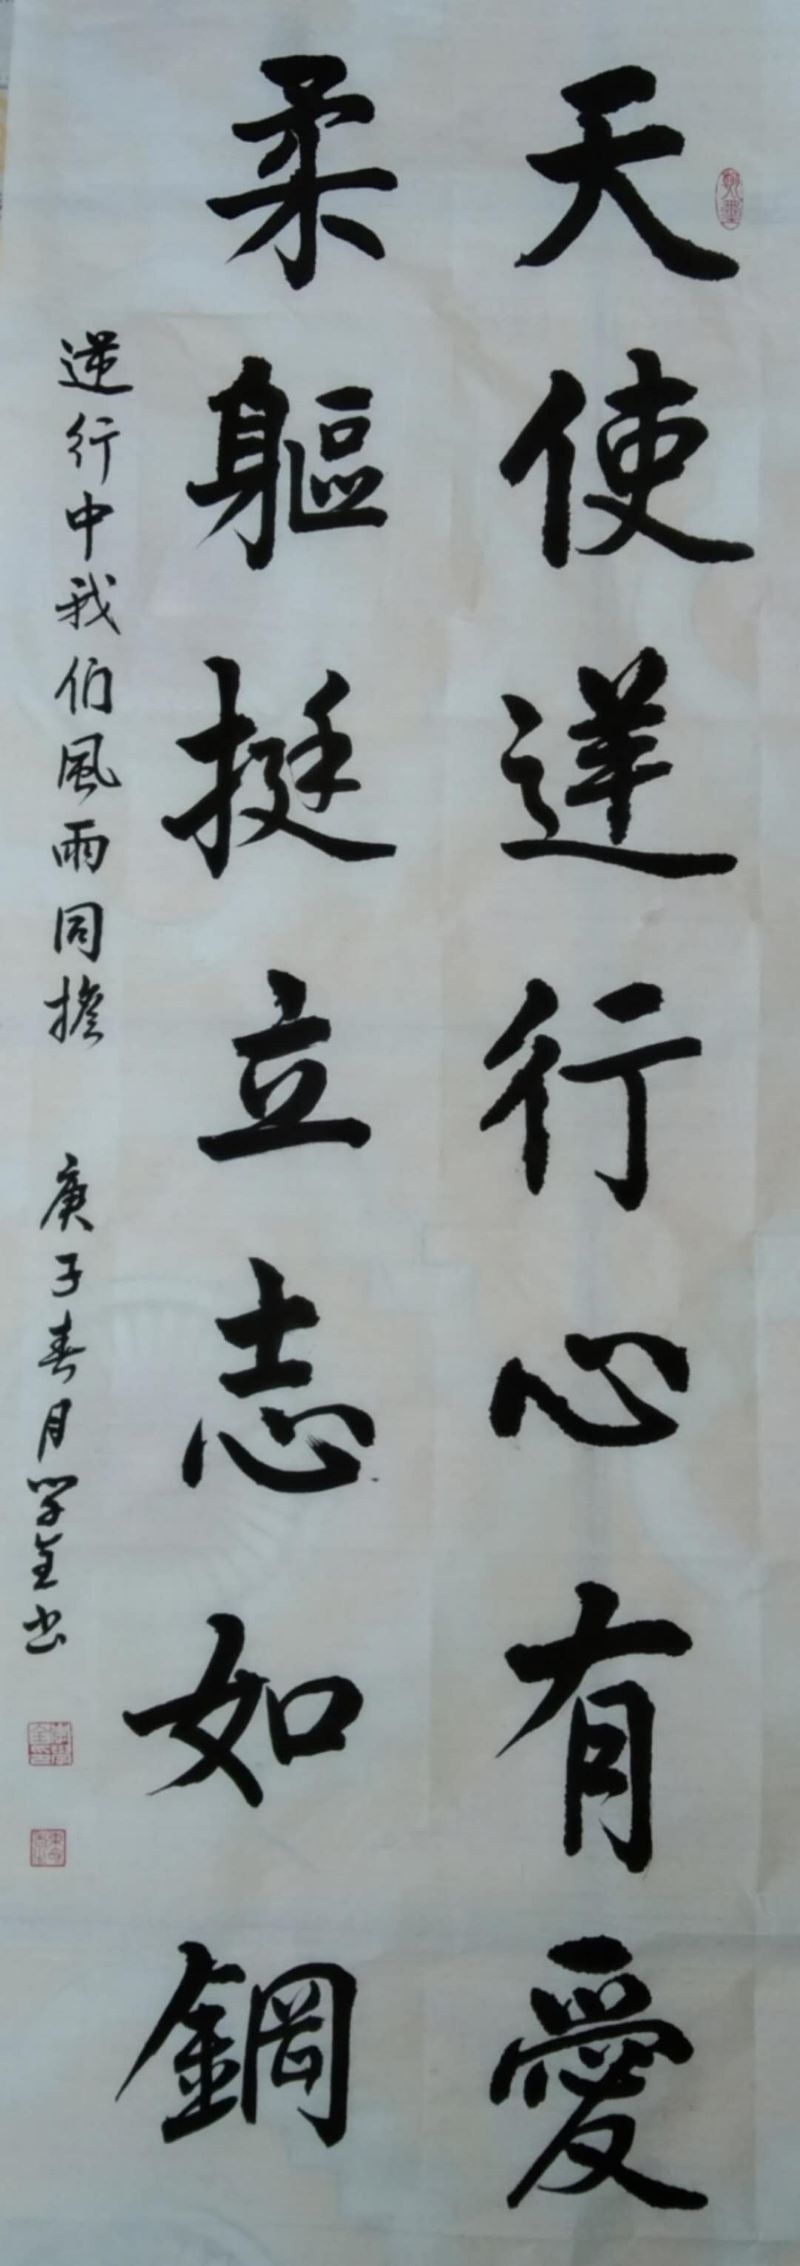 天使逆行心有愛
柔軀挺立志如鋼
逆行中我们風雨同擔
庚子春月學全书